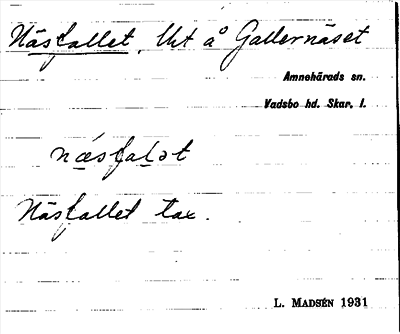 Näsfallet, Utt å Gallernäset
Amnehärads sn.
Vadsbo hd. Skar. l.
næsfalət
Näsfallet tax.
L. MADSÉN 1931